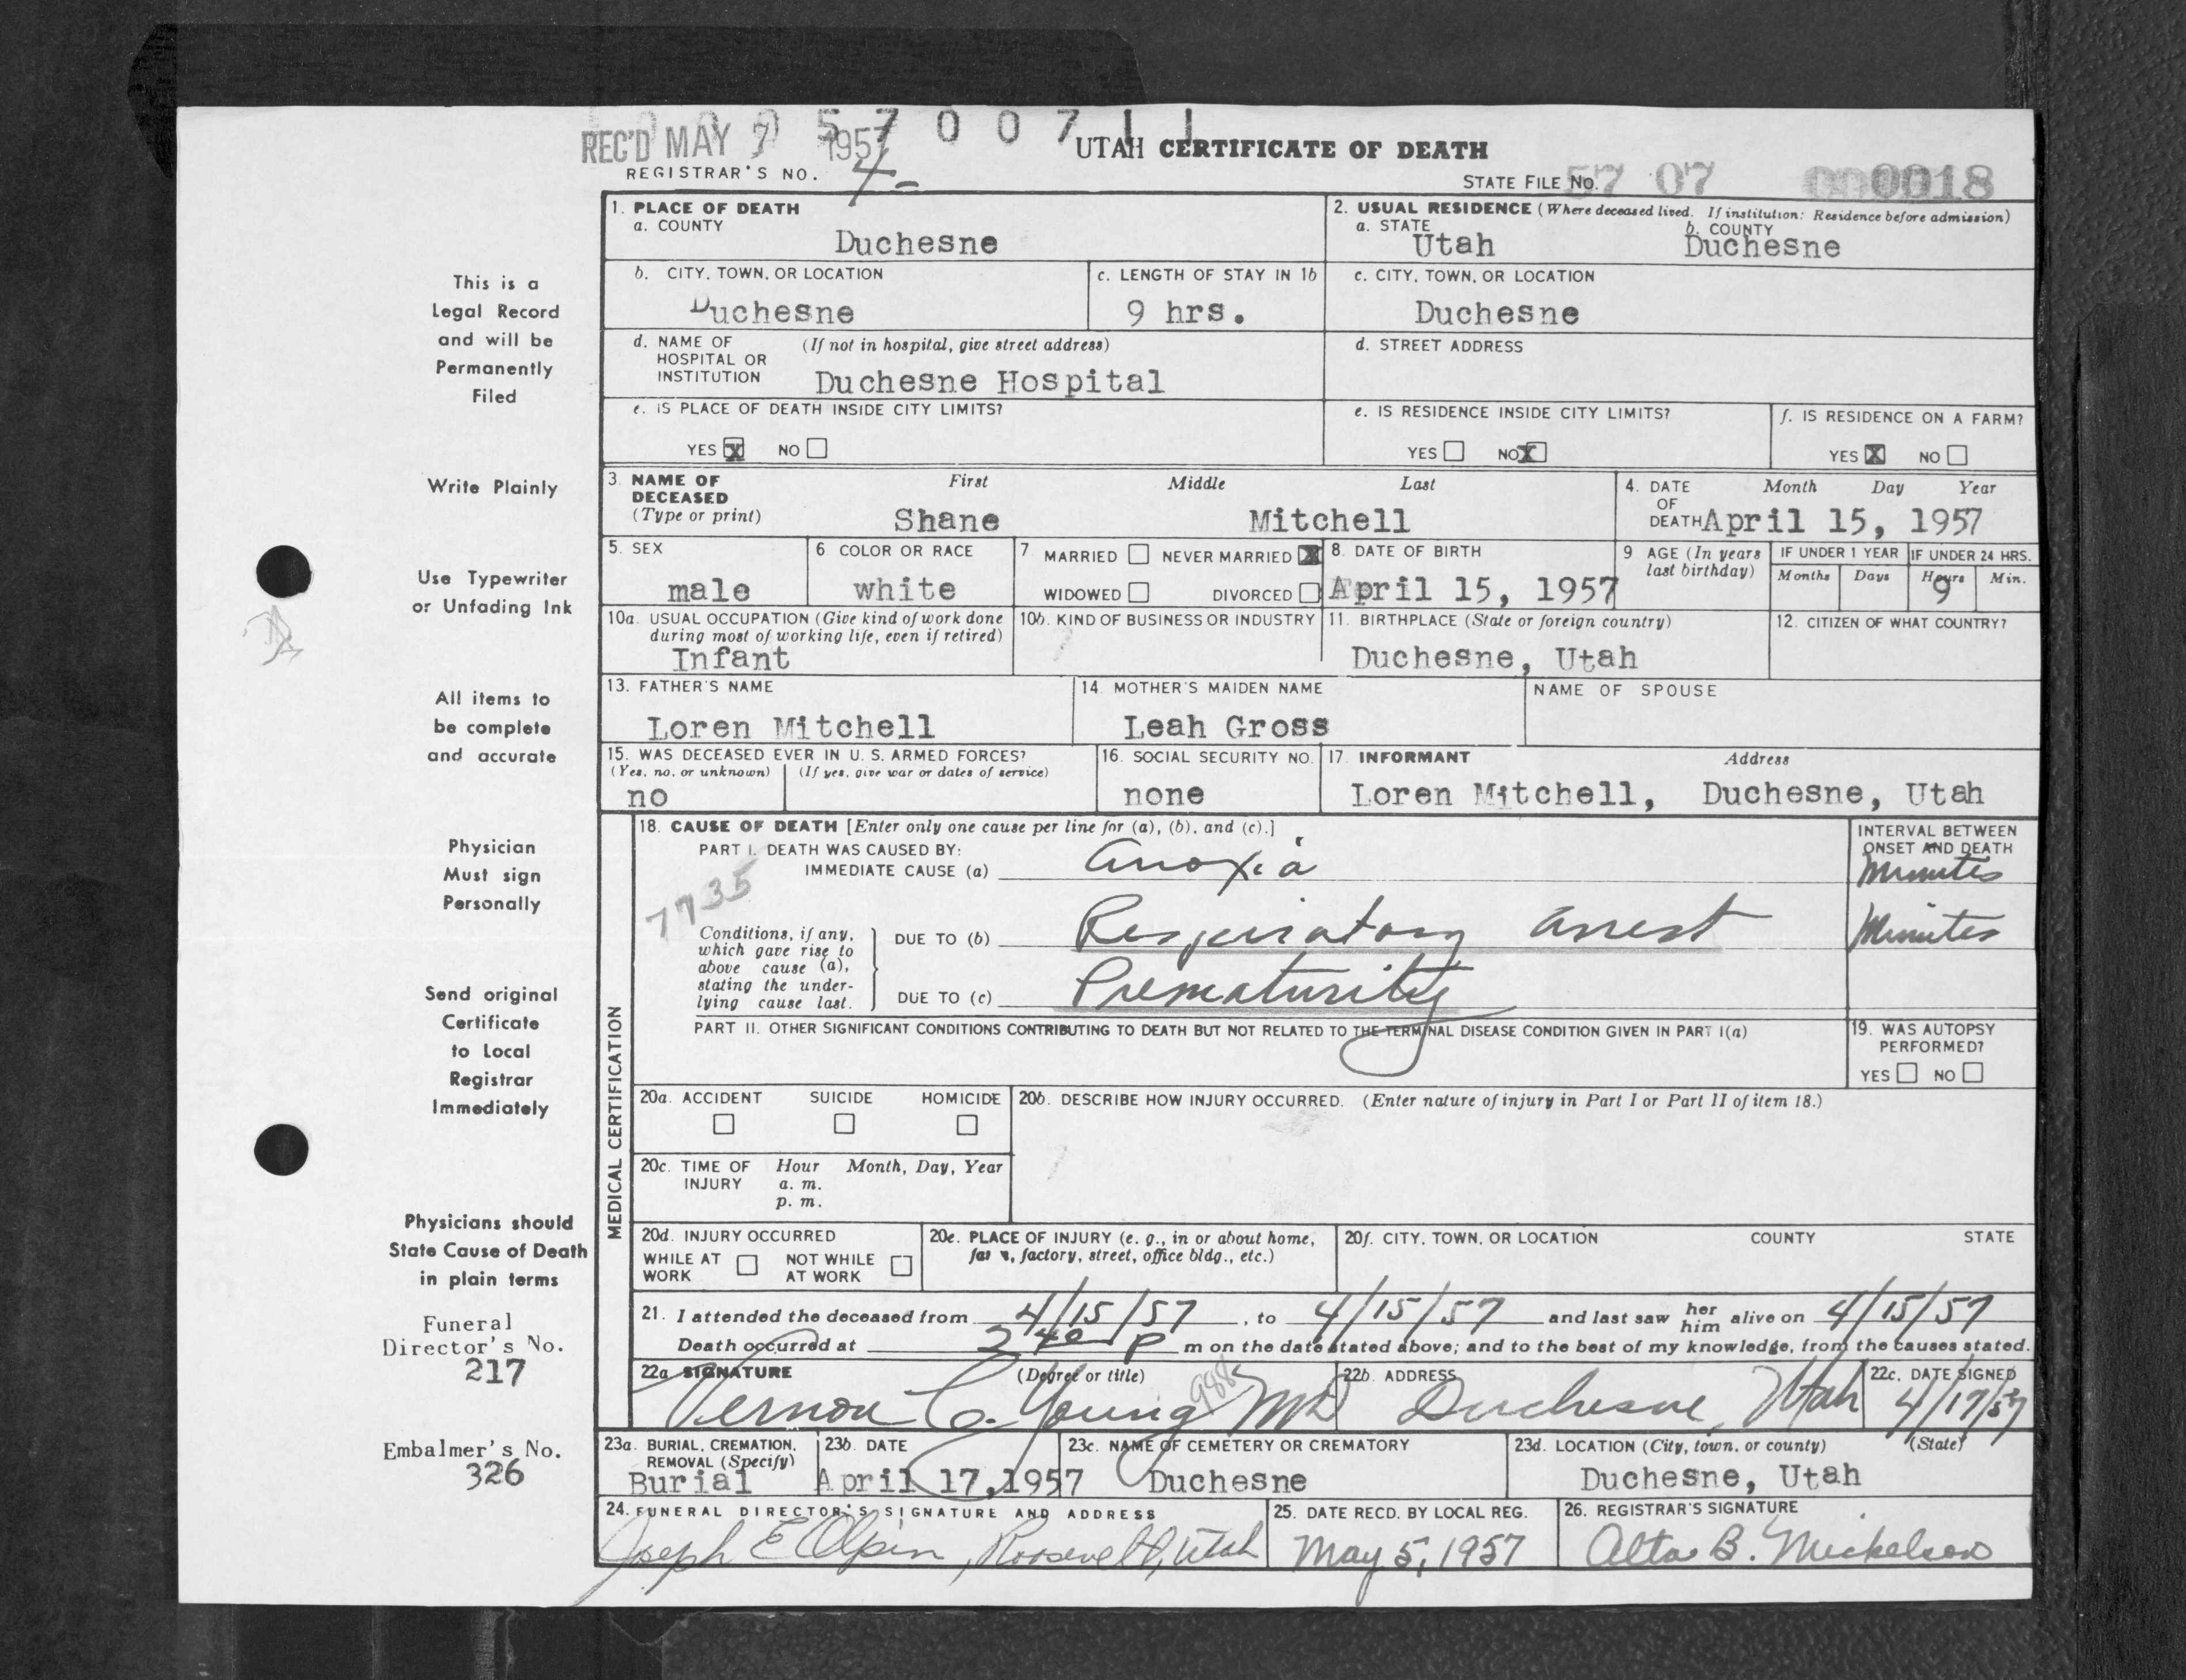 REC'D MAY 7 1957
0 0 5 7 0 0 7 1 1
UTAH CERTIFICATE OF DEATH
REGISTRAR'S NO. 4-
STATE FILE NO. 57 07 0018
This is a
Legal Record
and will be
Permanently
Filed
Write Plainly
Use Typewriter
or Unfading Ink
All items to
be complete
and accurate
Physician
Must sign
Personally
Send original
Certificate
to Local
Registrar
Immediately
Physicians should
State Cause of Death
in plain terms
Funeral
Director's No.
217
Embalmer's No.
326
1. PLACE OF DEATH
a. COUNTY
Duchesne
2. USUAL RESIDENCE (Where deceased lived. If institution: Residence before admission)
a. STATE
Utah
b. COUNTY
Duchesne
b. CITY, TOWN, OR LOCATION
Duchesne
c. LENGTH OF STAY IN 1b
9 hrs.
c. CITY, TOWN, OR LOCATION
Duchesne
d. NAME OF (If not in hospital, give street address)
HOSPITAL OR
INSTITUTION Duchesne Hospital
d. STREET ADDRESS
e. IS PLACE OF DEATH INSIDE CITY LIMITS?
YES X NO
e. IS RESIDENCE INSIDE CITY LIMITS?
YES NO X
f. IS RESIDENCE ON A FARM?
YES X NO
3. NAME OF DECEASED (Type or print)
First Middle Last
Shane Mitchell
4. DATE OF DEATH
Month Day Year
April 15, 1957
5. SEX
male
6. COLOR OR RACE
white
7. MARRIED NEVER MARRIED X
WIDOWED DIVORCED
8. DATE OF BIRTH
April 15, 1957
9 AGE (In years last birthday)
IF UNDER 1 YEAR
Months Days
IF UNDER 24 HRS.
Hours Min.
9
10a. USUAL OCCUPATION (Give kind of work done
during most of working life, even if retired)
Infant
10b. KIND OF BUSINESS OR INDUSTRY
11. BIRTHPLACE (State or foreign country)
Duchesne, Utah
12. CITIZEN OF WHAT COUNTRY?
13. FATHER'S NAME
Loren Mitchell
14. MOTHER'S MAIDEN NAME
Leah Gross
NAME OF SPOUSE
15. WAS DECEASED EVER IN U. S. ARMED FORCES?
(Yes, no, or unknown) (If yes, give war or dates of service)
no
16. SOCIAL SECURITY NO.
none
17. INFORMANT Address
Loren Mitchell, Duchesne, Utah
MEDICAL CERTIFICATION
18. CAUSE OF DEATH [Enter only one cause per line for (a), (b), and (c).]
PART I. DEATH WAS CAUSED BY:
IMMEDIATE CAUSE (a) Anoxia
7735
Conditions, if any,
which gave rise to
above cause (a),
stating the under-
lying cause last.
DUE TO (b) Respiratory arrest
DUE TO (c) Prematurity
INTERVAL BETWEEN
ONSET AND DEATH
Minutes
Minutes
PART II. OTHER SIGNIFICANT CONDITIONS CONTRIBUTING TO DEATH BUT NOT RELATED TO THE TERMINAL DISEASE CONDITION GIVEN IN PART I(a)
19. WAS AUTOPSY
PERFORMED?
YES NO
20a. ACCIDENT SUICIDE HOMICIDE
20b. DESCRIBE HOW INJURY OCCURRED. (Enter nature of injury in Part I or Part II of item 18.)
20c. TIME OF INJURY
Hour Month, Day, Year
a. m.
p. m.
20d. INJURY OCCURRED
WHILE AT WORK NOT WHILE AT WORK
20e. PLACE OF INJURY (e. g., in or about home,
farm, factory, street, office bldg., etc.)
20f. CITY, TOWN, OR LOCATION COUNTY STATE
21. I attended the deceased from 4/15/57, to 4/15/57 and last saw her him alive on 4/15/57
Death occurred at 2 40 P m on the date stated above; and to the best of my knowledge, from the causes stated.
22a. SIGNATURE (Degree or title)
Vernon C. Young MD
22b. ADDRESS
Duchesne, Utah
22c. DATE SIGNED
4/17/57
23a. BURIAL, CREMATION,
REMOVAL (Specify)
Burial
23b. DATE
April 17, 1957
23c. NAME OF CEMETERY OR CREMATORY
Duchesne
23d. LOCATION (City, town, or county) (State)
Duchesne, Utah
24. FUNERAL DIRECTOR'S SIGNATURE AND ADDRESS
Joseph E Olpin, Roosevelt, Utah
25. DATE RECD. BY LOCAL REG.
May 5, 1957
26. REGISTRAR'S SIGNATURE
Alta B. Mickelson